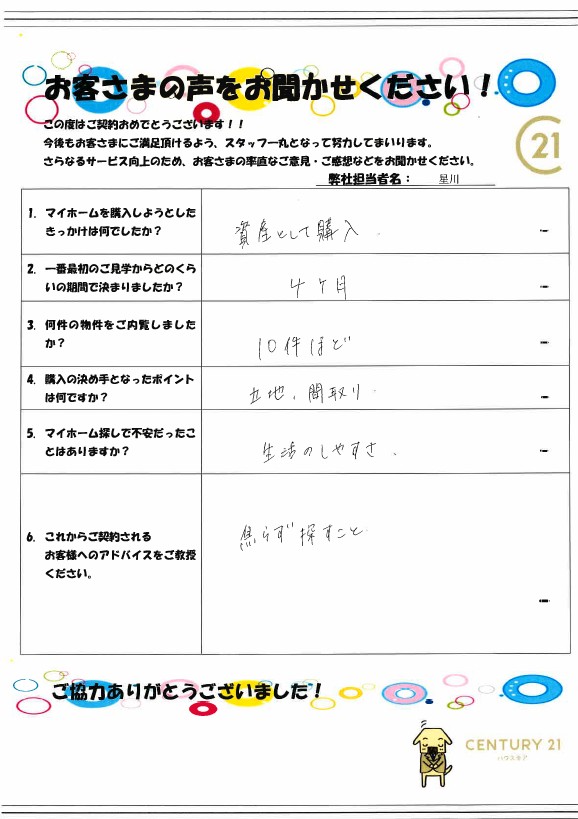 お客さまの声をお聞かせください！
この度はご契約おめでとうございます！！
今後もお客さまにご満足頂けるよう、スタッフ一丸となって努力してまいります。
さらなるサービス向上のため、お客さまの率直なご意見・ご感想などをお聞かせください。
21
弊社担当者名： 星川
1. マイホームを購入しようとした
きっかけは何でしたか？
資産として購入.
2. 一番最初のご見学からどのくら
いの期間で決まりましたか？
4ヶ月
3. 何件の物件をご内覧しました
か？
10件ほど
4. 購入の決め手となったポイント
は何ですか？
立地、間取り.
5. マイホーム探しで不安だったこ
とはありますか？
生活のしやすさ.
6. これからご契約される
お客様へのアドバイスをご教授
ください。
焦らず探すこと.
ご協力ありがとうございました！
CENTURY 21
ハウスモア